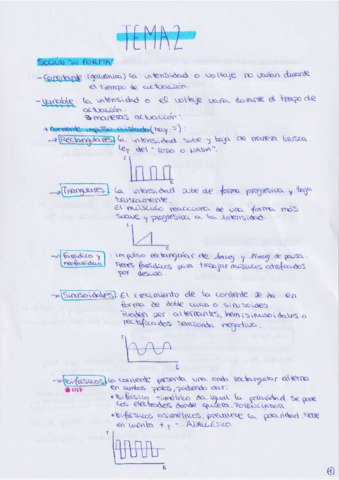 TEMA 2
SEGÚN SU FORMA
- Constante (galvánica) la intensidad o voltaje no varían durante
el tiempo de actuación.
- Variable: la intensidad o el voltaje varía durante el tiempo de
actuación.
3 maneras actuación:
+ Corriente impulso aislado (hay 5):
→ Rectangulares: la intensidad sube y baja de manera brusca
Ley del "TODO o NADA".
I
t
→ Triangulares: La intensidad sube de forma progresiva y baja
bruscamente.
El músculo reacciona de una forma más
suave y progresiva a la intensidad.
I
t
→ Farádico y neofarádico: impulso rectangular de y de pausa.
Tienes farádicos para trabajar músculos atrofiados
por desuso.
→ Sinusoidales: El crecimiento de la corriente se da en
forma de doble curva o sinusoides.
Pueden ser alternantes, hemisinusoidales o
rectificados semionda negativa.
→ Bifásicos: la corriente presenta una onda rectangular alterna
en ambos polos, pudiendo dar:
• Bifásico simétrico da igual la polaridad se pone
los electrodos donde quieras. POTENCIACIÓN
• Bifásicos asimétricos, prevalece la polaridad tiene
en cuenta + y -. ANALGÉSICO.
I
t